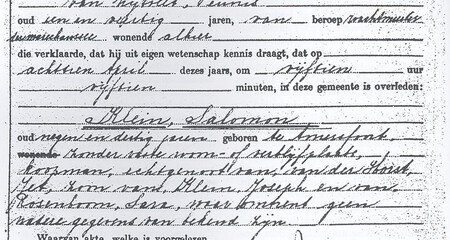 van
oud een en vijftig jaren, van beroep wachtmeester
der marechaussee wonende alhier
die verklaarde, dat hij uit eigen wetenschap kennis draagt, dat op
achttien April dezes jaars, om vijftien uur
vijftien minuten, in deze gemeente is overleden:
Klein, Salomon
oud negen en dertig jaren geboren te Amersfoort,
wonende zonder vaste woon- of verblijfplaats,
koopman, echtgenoot van, van der Horst,
Jet, zoon van, Klein, Joseph en van,
Rosenboom, Sara, waaromtrent geen
nadere gegevens van bekend zijn
Waarvan akte, welke is voorgelezen